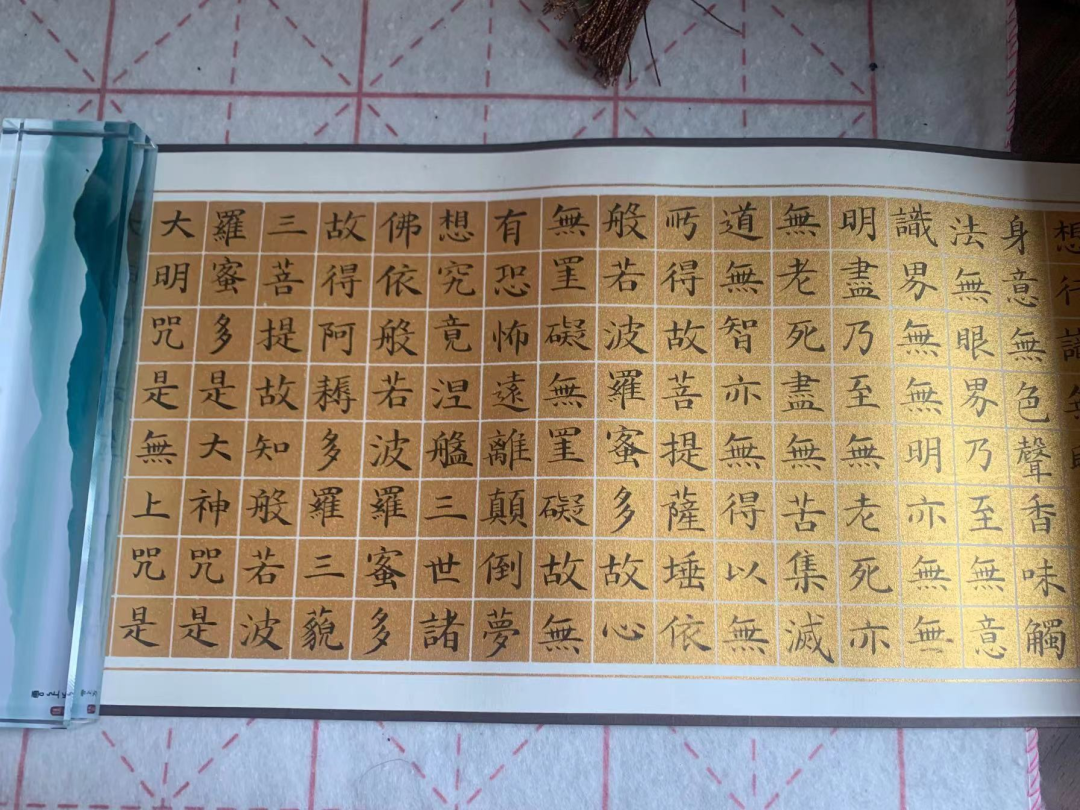 想行識無
身意無色聲香味觸
法無眼界乃至無意
識界無無明亦無無
明盡乃至無老死亦
無老死盡無苦集滅
道無智亦無得以無
所得故菩提薩埵依
般若波羅蜜多故心
無罣礙無罣礙故無
有恐怖遠離顛倒夢
想究竟涅槃三世諸
佛依般若波羅蜜多
故得阿耨多羅三藐
三菩提故知般若波
羅蜜多是大神咒是
大明咒是無上咒是